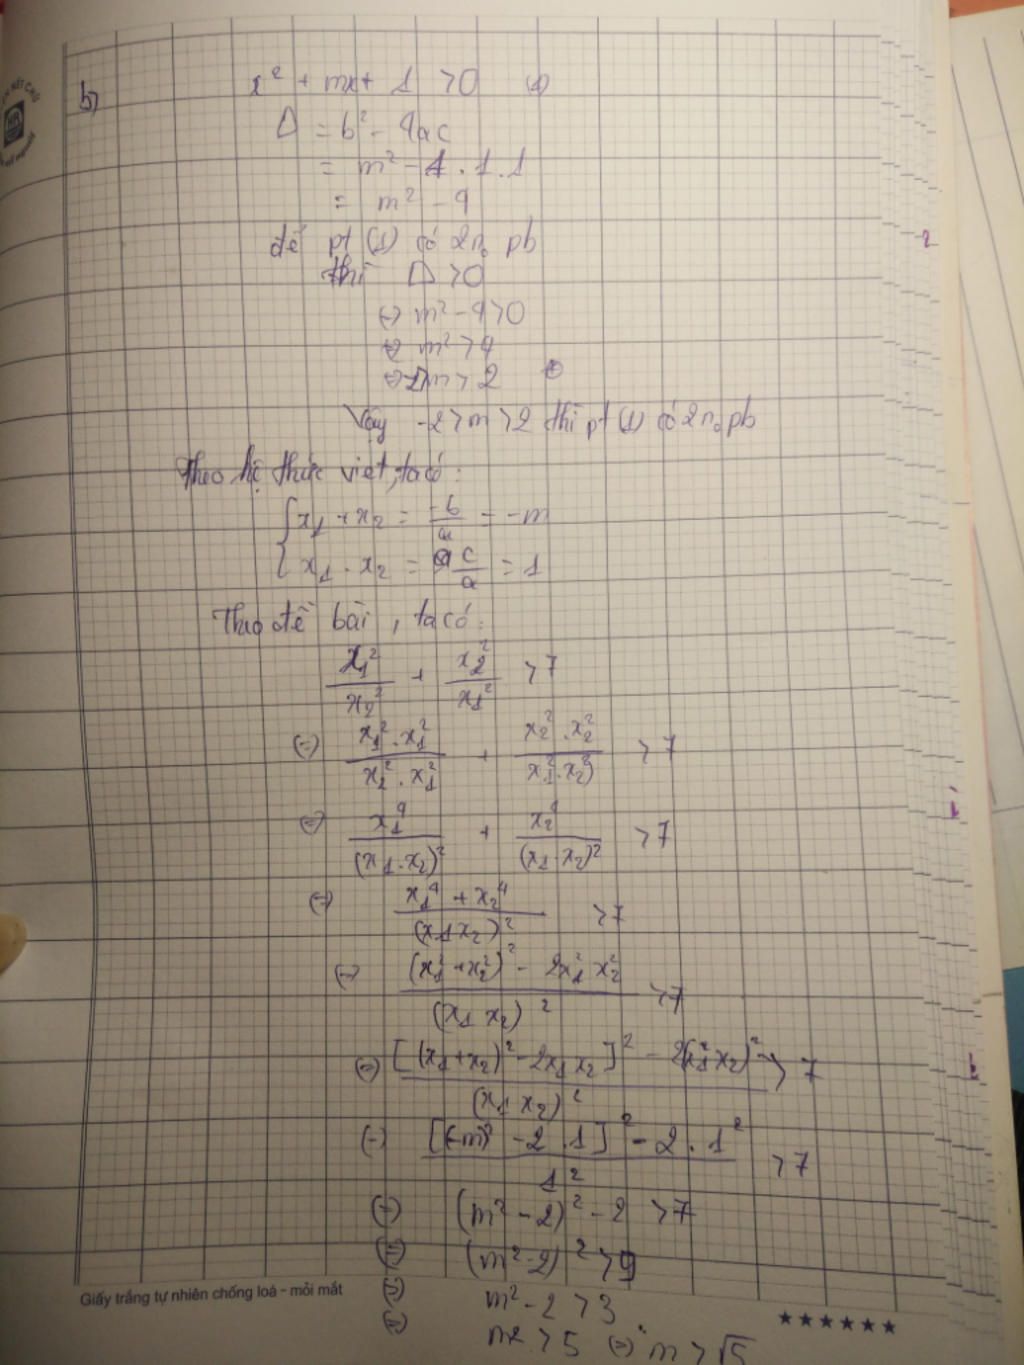 b) x² + mx + 1 > 0 (1)
Δ = b² - 4ac
= m² - 4 . 1 . 1
= m² - 4
để pt (1) có 2n₀ pb
thì Δ > 0
⇔ m² - 4 > 0
⇔ m² > 4
⇔ m > 2
Vậy -2 > m > 2 thì pt (1) có 2n₀ pb
Theo hệ thức viet, ta có:
{ x₁ + x₂ = -b/a = -m
{ x₁ . x₂ = c/a = 1
Theo đề bài, ta có:
x₁²/x₂² + x₂²/x₁² > 7
⇔ x₁² . x₁²/x₁² . x₁² + x₂² . x₂²/x₁² . x₂² > 7
⇔ x₁⁴/(x₁ . x₂)² + x₂⁴/(x₁ . x₂)² > 7
⇔ x₁⁴ + x₂⁴/(x₁ x₂)² > 7
⇔ (x₁² + x₂²)² - 2x₁² x₂²/(x₁ x₂)² > 7
⇔ [(x₁ + x₂)² - 2x₁ x₂]² - 2(x₁ x₂)²/(x₁ x₂)² > 7
⇔ [(-m)² - 2 . 1]² - 2 . 1²/1² > 7
⇔ (m² - 2)² - 2 > 7
⇔ (m² - 2)² > 9
⇔ m² - 2 > 3
⇔ m² > 5 ⇔ m > √5
Giấy trắng tự nhiên chống loá - mỏi mắt